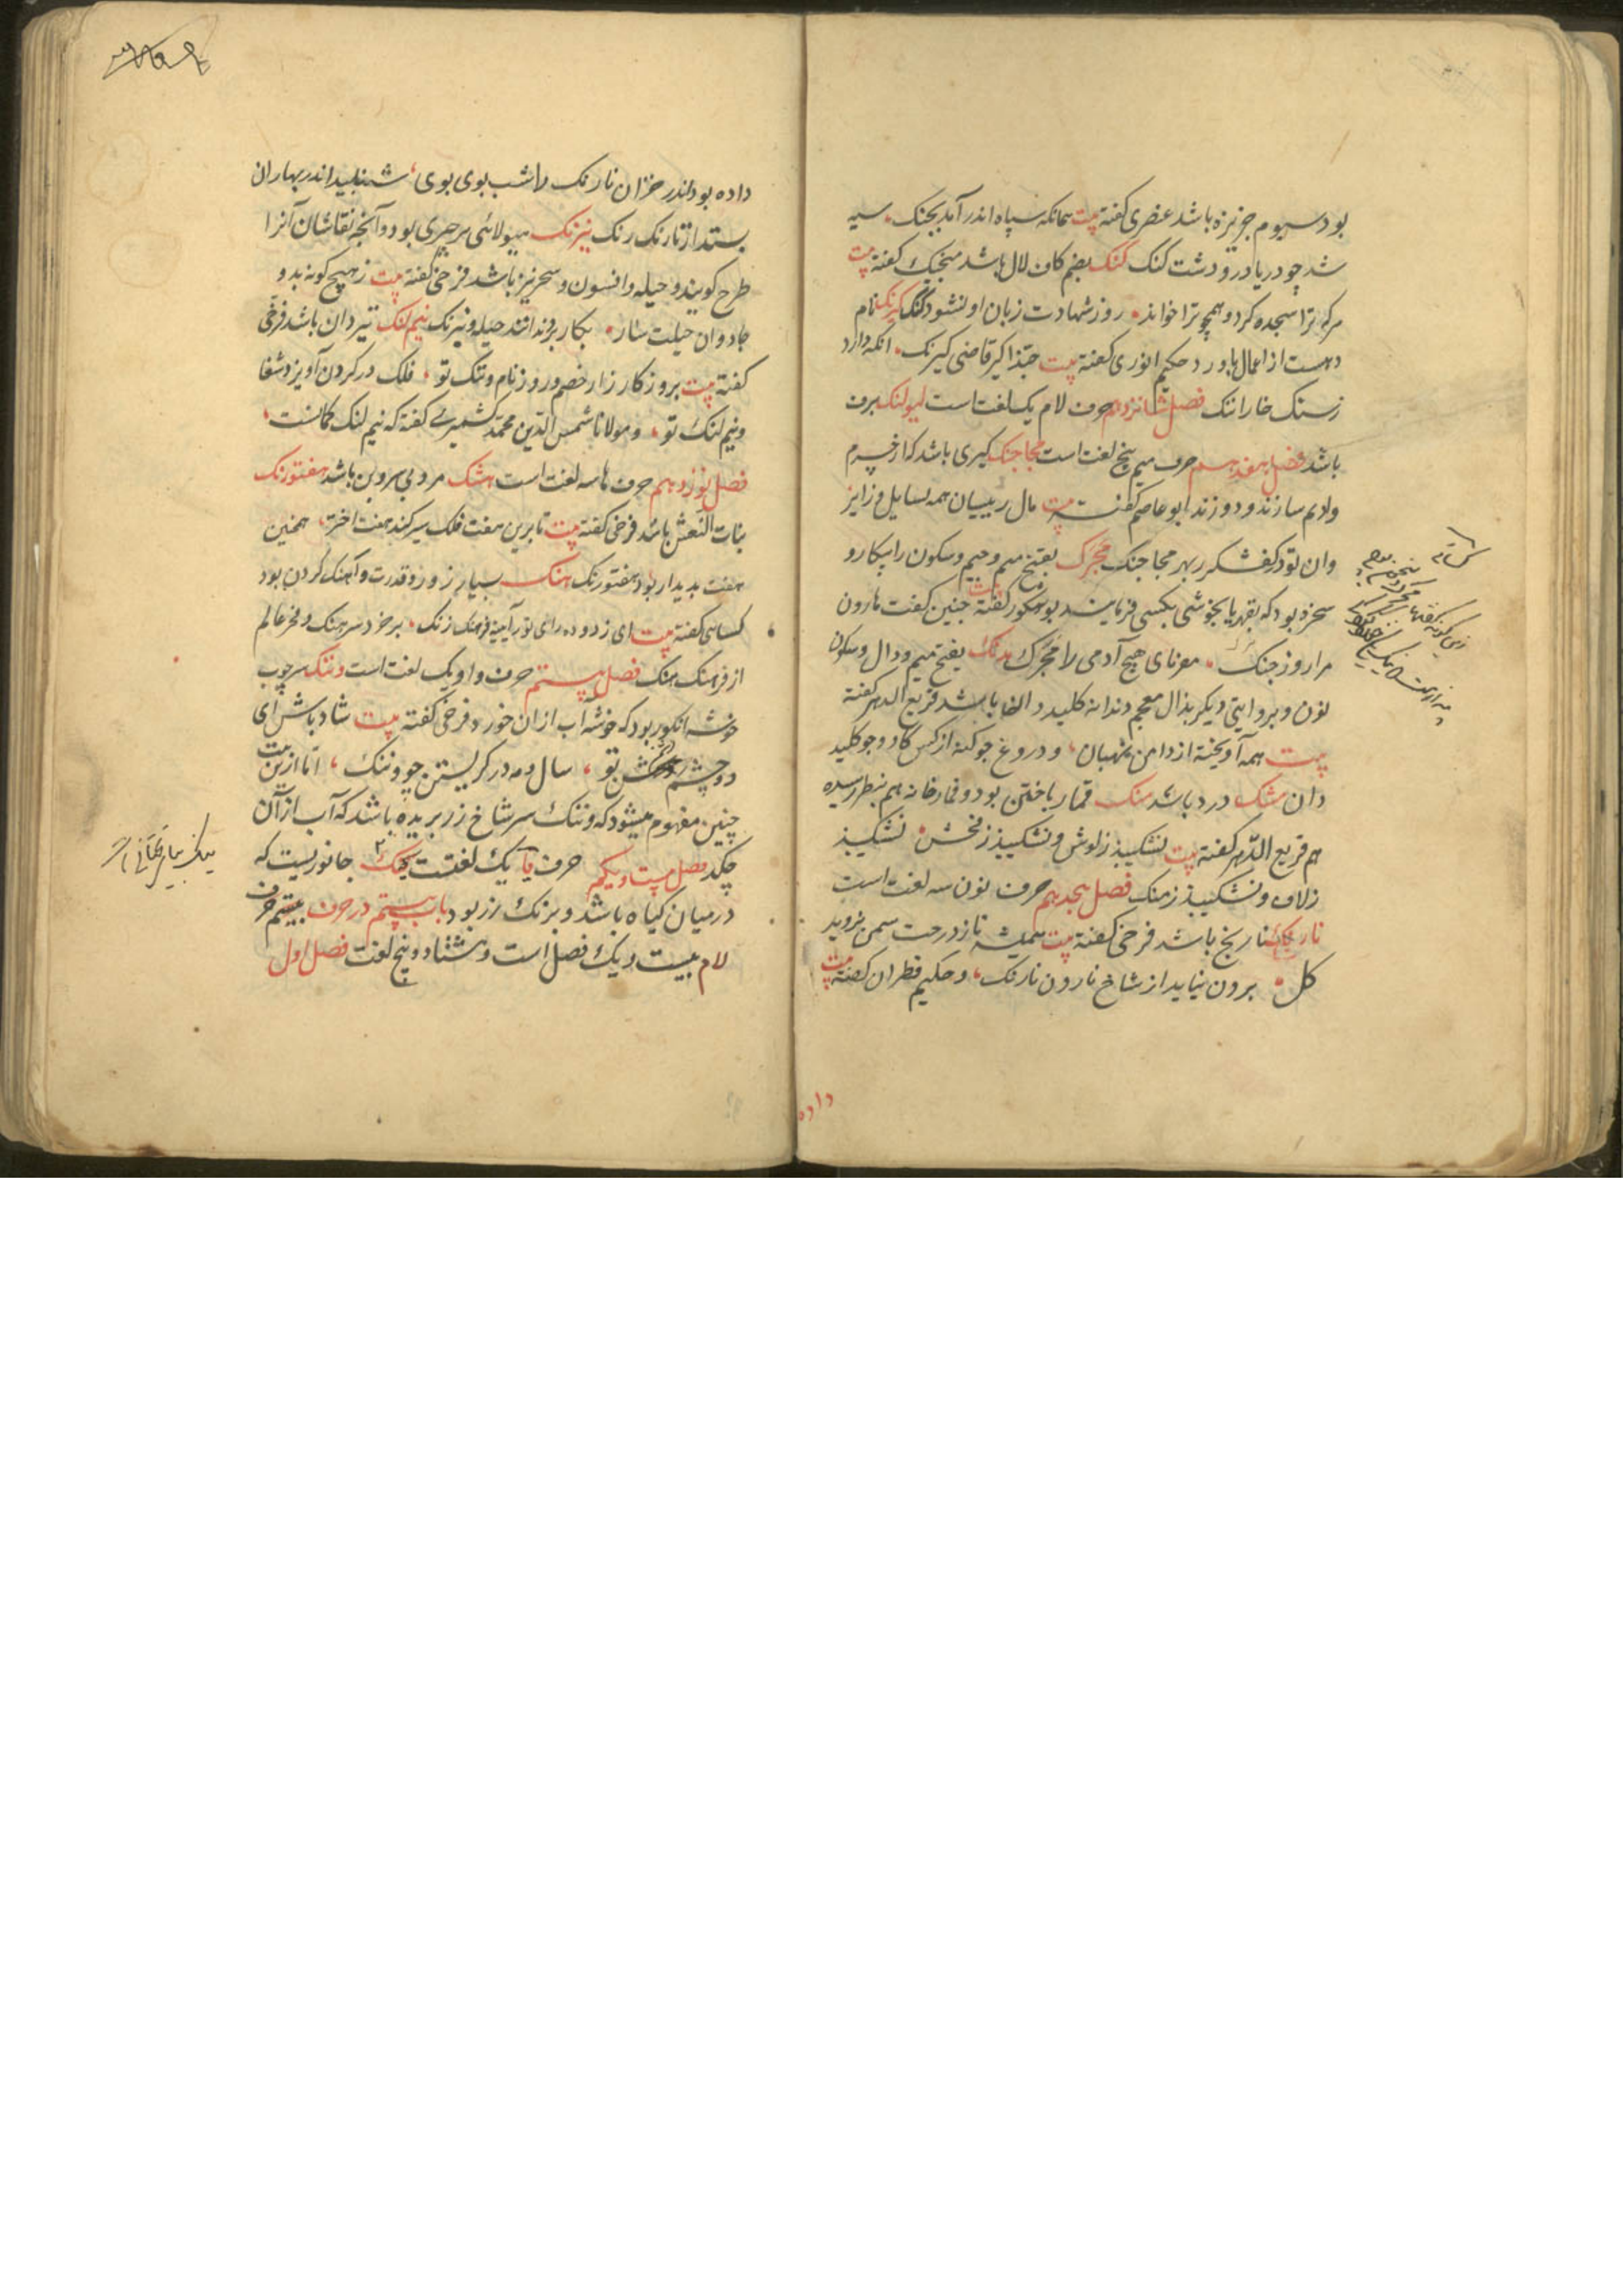 بود سیوم جزیزه باشد عنصری کفته بیت همانکه سپاه اندر آمد بجنک سیه
شد چو دریا در و دشت کنک کنک بضم کاف لال باشد منجیک کفته بیت
هرکه ترا سجده کرد و همچو ترا خواند روز شهادت زبان او نشود کنک کیرنک نام
دهست از اعمال باورد حکیم انوری کفته بیت حبذا کیر قاضی کیرنک آنکه دارد
زسنک خارا ننک فصل شانزدهم حرف لام یک لغت است لیولنک برف
باشد فصل هفدهم حرف میم پنج لغت است مجاجنک کیری باشد که از چرم
وادیم سازند و دوزند ابو عاصم کفته بیت مال رییسیان همه بسایل و زایر
وان تو کفشکر بهر مجاجنک مجرک بفتح میم و جیم و سکون را بیکار و
سخره بود که بقهر یا بخوشی بکسی فرمایند بوشکور کفته بیت چنین کفت هارون
مرا روز جنک مفرمای هیچ آدمی را مجرک مدنک بفتح میم و دال و سکون
نون و بروایتی دیکر بذال معجم دندانه کلید در الفا باشد قریع الدهر کفته
بیت همه آویخته از دامن بهتان و دروغ جو کنه از کس کاو و جو کلید
دان مشنک درد باشد منک قمار باختن بود و قمارخانه هم بنظر رسیده
هم قریع الدهر کفته بیت نشکیبد ز لوش و نشکیبد ز فحش نشکیبد
زلاف و نشکیبد ز منک فصل هجدهم حرف نون سه لغت است
نارنک نارنج باشد فرخی کفته بیت همیشه تا ز درخت سمن نروید
کل برون نیاید از شاخ نارون نارنک و حکیم قطران کفته بیت
داده
داده بود اندر خزان نارنک را شب بوی بوی شنبلید اندر بهاران
بستد از نارنک رنک نیرنک هیولائی هر چیزی بود و آنچه نقاشان آنرا
طرح کویند و حیله و افسون و سحر نیز باشد فرخی کفته بیت ز هیچ کونه بدو
جادوان حیلت ساز بکار برند اند حیله و نیرنک نیم لنک تیردان باشد فرخی
کفته بیت بروز کارزار خصم و روز نام و ننک تو فلک در کردن آویزد شغا
و نیم لنک تو و مولانا شمس الدین محمد کشمیری کفته که نیم لنک کمانست
فصل نوزدهم حرف ها سه لغت است هشنک مرد بی سر و بن باشد هفتورنک
بنات النعش باشد فرخی کفته بیت تا برین هفت فلک سیر کند هفت اختر همچنین
هفت پدیدار بود هفتورنک هنک بسیار زور و قدرت و آهنک کردن بود
کسائی کفته بیت ای زدوده رای تو ز آیینه فرهنک زنک بر خرد سرهنک و فخر عالم
از فرهنک هنک فصل بیستم حرف واو یک لغت است وننک سر چوب
خوشه انکور بود که خوشه آب از ان خورد فرخی کفته بیت شاد باش ای
دو چشم تو سال و مه در کریستن چو وننک اما ازین بیت
چنین مفهوم میشود که وننک سر شاخ زر بریده باشد که آب از آن
چکد فصل بیست و یکم حرف یا یک لغتست جانوریست که
در میان کیاه باشد و برنک رز بود باب بیستم در حرف بیستم حرف
لام بیست و یک فصل است و هشتاد و پنج لغت فصل اول